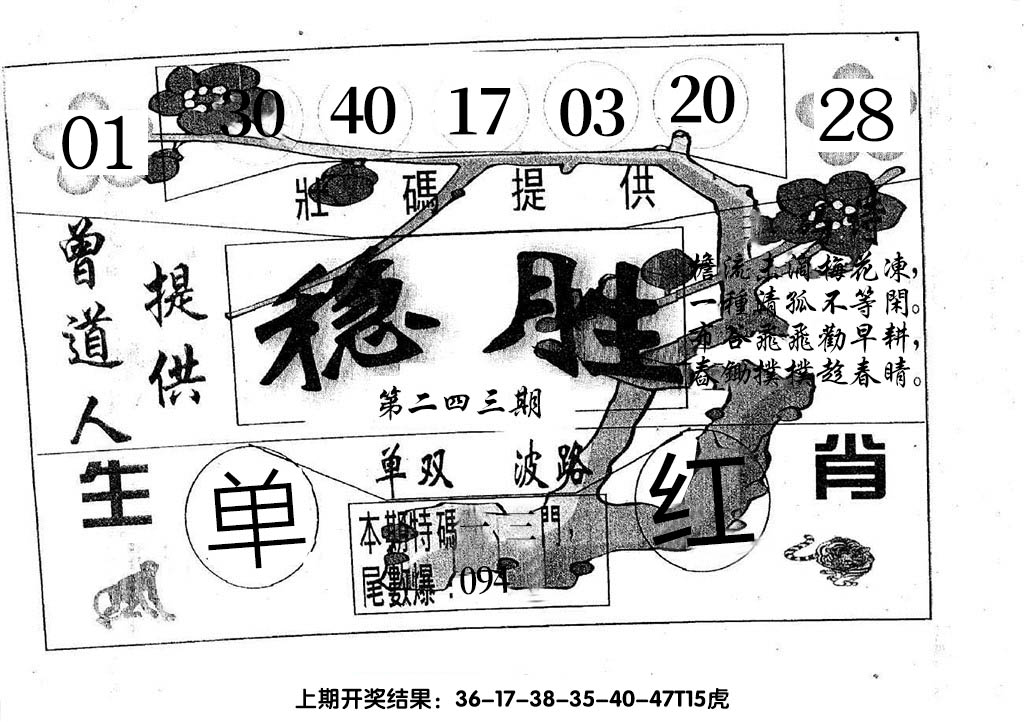 01 30 40 17 03 20 28
壯碼提供
曾道人
提供
稳胜
第二四三期
一種請孤不等閑。
布谷飛飛勸早耕，
春鋤撲撲趁春晴。
单双 波路
生肖
单
红
本期特碼一、三門，
尾數爆：094
上期开奖结果：36-17-38-35-40-47T15虎